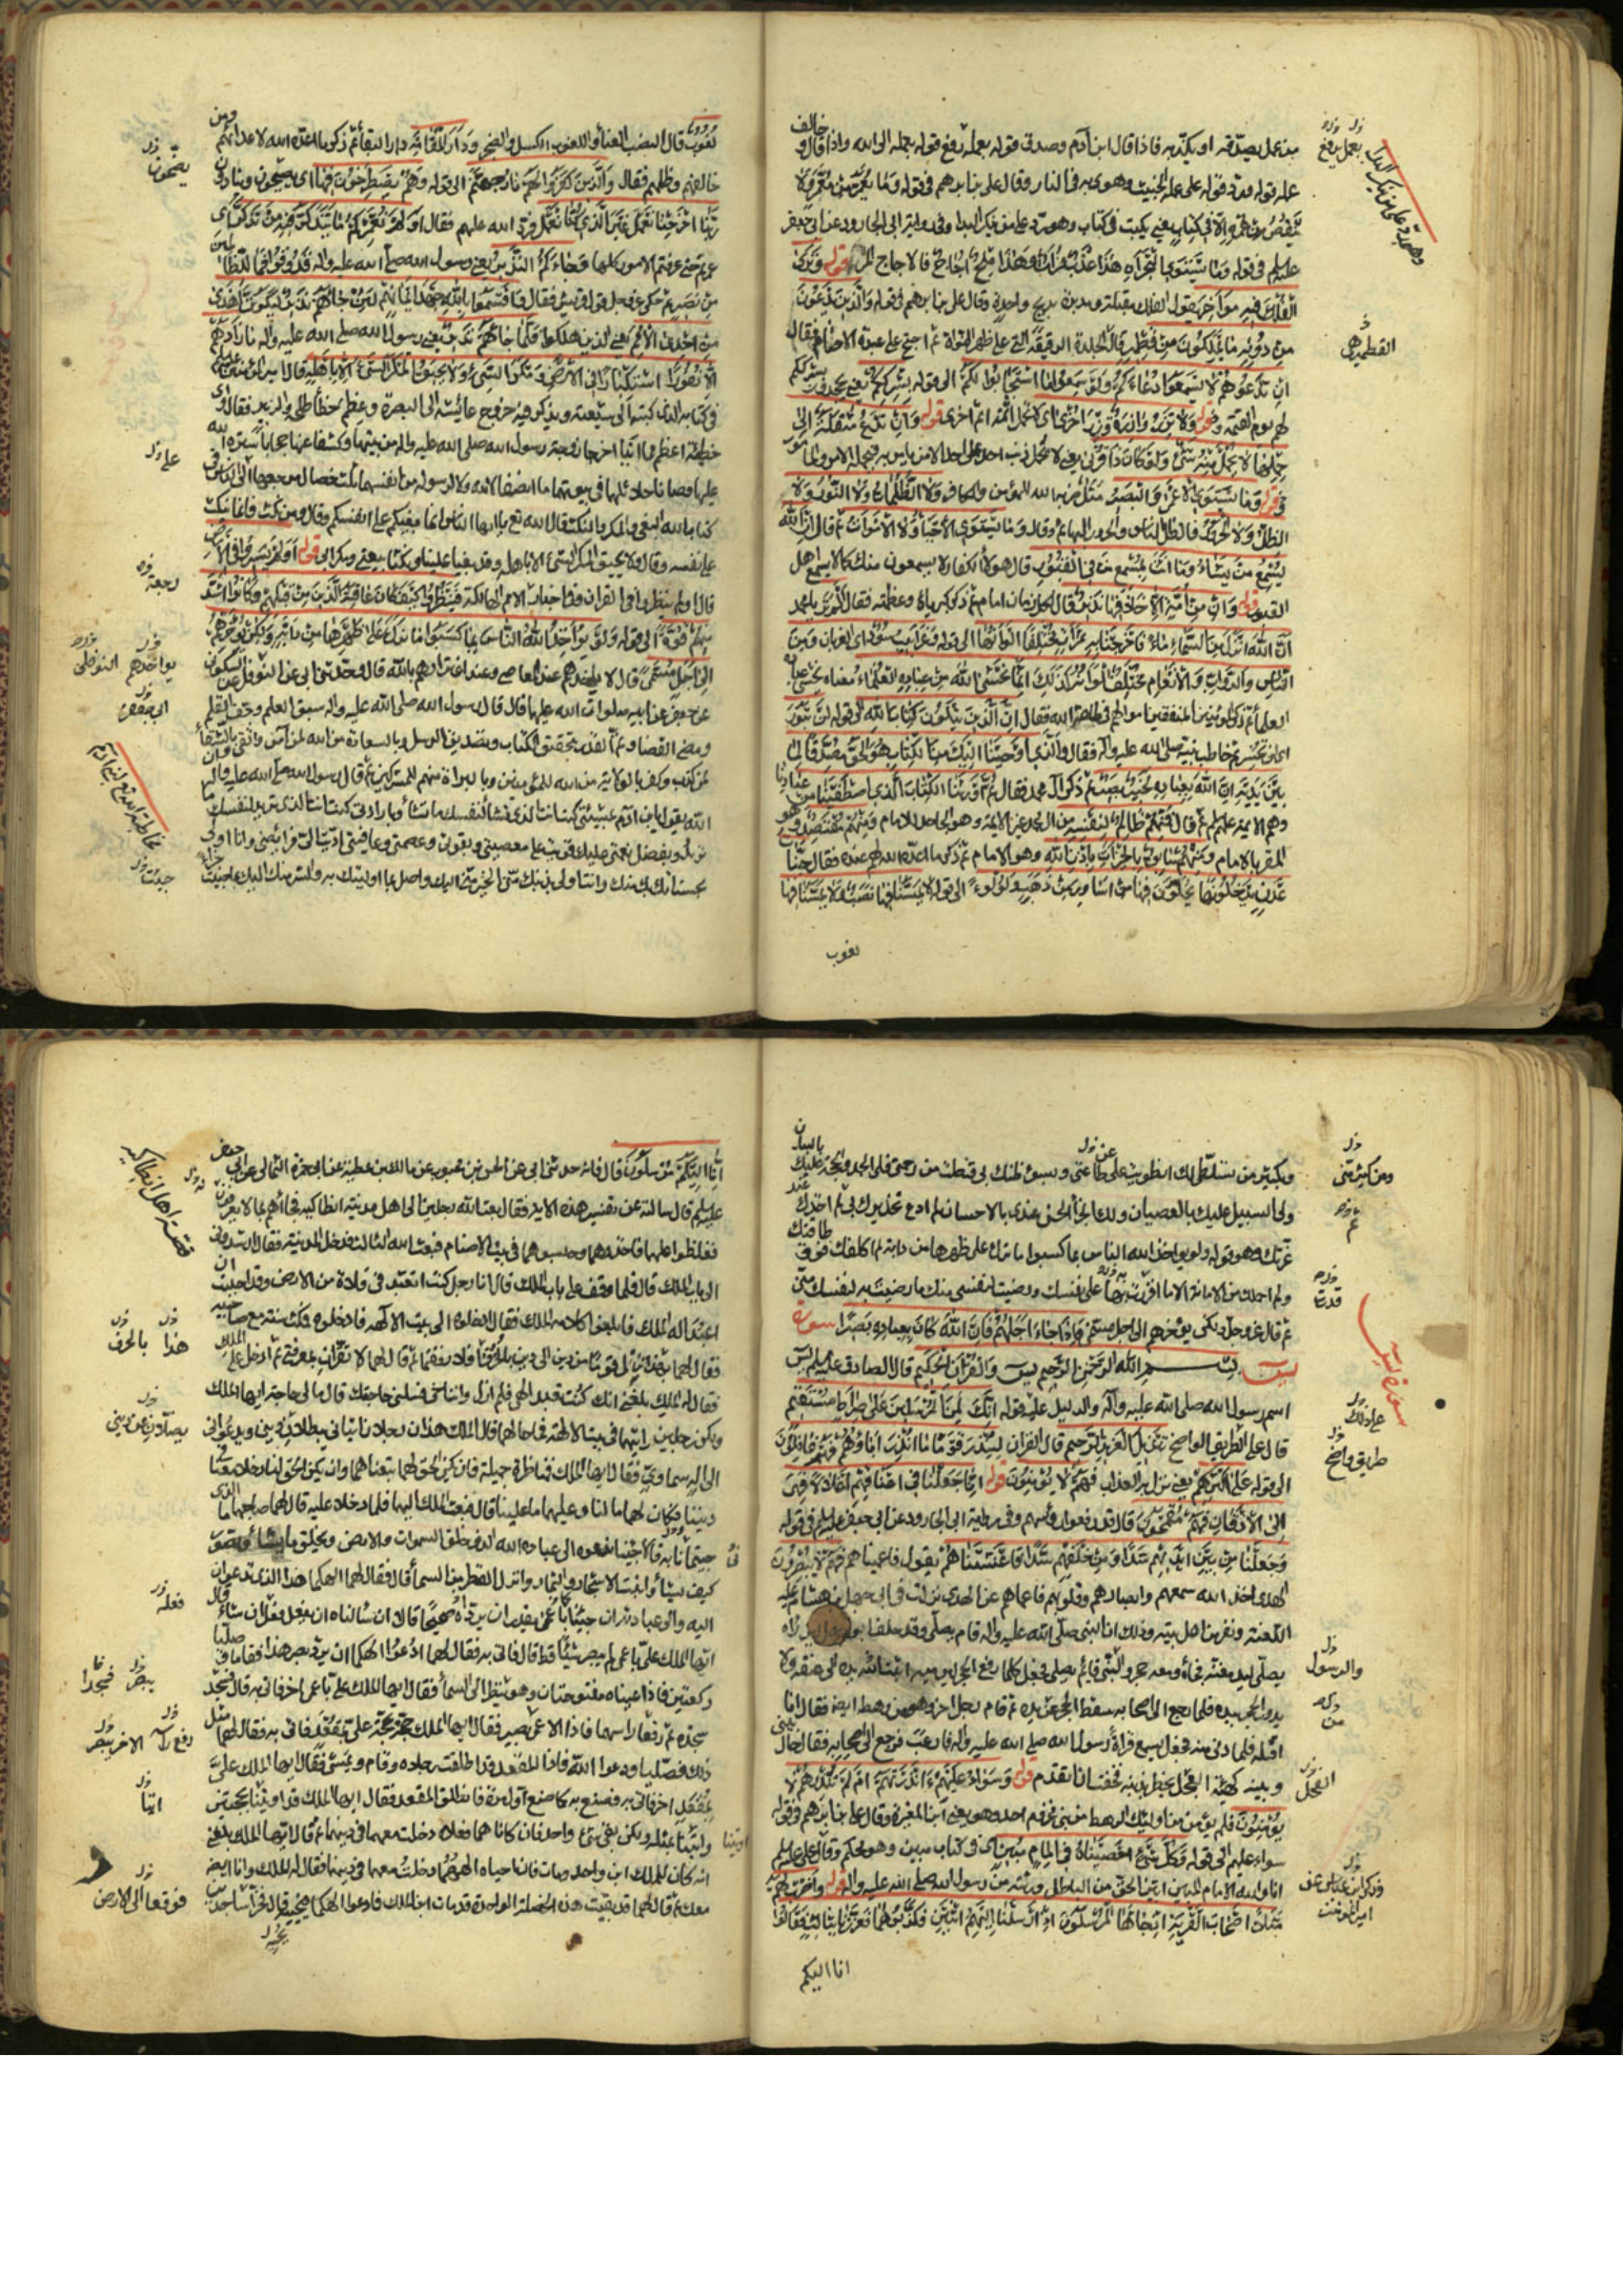 من عمل يصدقه او يكذبه فاذا قال ابن آدم وصدق قوله بعمله رفع قوله بعمله الى الله واذا قال و خالف
عمله قوله رد قوله على عمله الخبيث وهوى به في النار وقال علي بن ابرهيم في قوله وما يعمر من معمر ولا
ينقص من عمره الا في كتاب يعني يكتب في كتاب وهو رد على من ينكر البداء وفي رواية ابي الجارود عن ابي جعفر
عليلم في قوله وما يستوي البحران هذا عذب فرات وهذا ملح اجاج فالاجاج المر قوله وترى
الفلك فيه مواخر يقول الفلك مقبلة ومدبرة بريح واحدة وقال علي بن ابرهيم في قوله والذين تدعون
من دونه ما يملكون من قطمير قال الجلدة الرقيقة التي على ظهر النواة ثم احتج على عبدة الاصنام فقال
ان تدعوهم لا يسمعوا دعاءكم ولو سمعوا ما استجابوا لكم الى قوله بشرككم يعني يجحدون بشرككم
لهم يوم القيمة وقوله ولا تزر وازرة وزر اخرى اى لا تحمل آثمة اثم اخرى قوله وان تدع مثقلة الى
حملها لا يحمل منه شئ ولو كان ذا قربى
قوله وما يستوي الاعمى والبصير مثل ضربه الله للمؤمن والكافر ولا الظلمات ولا النور ولا
الظل ولا الحرور فالظل الناس والحرور البهائم وقال وما يستوي الاحياء ولا الاموات ثم قال ان الله
يسمع من يشاء وما انت بمسمع من في القبور قال هولاء الكفار لا يسمعون منك كما لا يسمع اهل
القبور قوله وان من امة الا خلا فيها نذير قال لكل زمان امام ثم ذكر كبرياءه وعظمته فقال الم تر يا محمد
ان الله انزل من السماء ماء فاخرجنا به ثمرات مختلفا الوانها الى قوله وغرابيب سود اى الغربان ومن
الناس والدواب والانعام مختلف الوانه كذلك انما يخشى الله من عباده العلماء معناه يخشى عباده
العلماء ثم ذكر المؤمنين المنفقين اموالهم في طاعة الله فقال ان الذين يتلون كتاب الله الى قوله لن تبور
اى لن تخسر ثم خاطب نبيه صلى الله عليه وآله فقال والذي اوحينا اليك من الكتاب هو الحق مصدقا لما
بين يديه ان الله بعباده لخبير بصير ثم ذكر آل محمد فقال ثم اورثنا الكتاب الذي اصطفينا من عبادنا
وهم الائمة عليهم لم ثم قال فمنهم ظالم لنفسه من آل محمد غير الائمة وهو الجاحد للامام ومنهم مقتصد وهو
المقر بالامام ومنهم سابق بالخيرات باذن الله وهو الامام ثم ذكر ما اعده الله لهم عنده فقال جنات
عدن يدخلونها يحلون فيها من اساور من ذهب ولؤلؤ الى قوله لا يمسنا فيها نصب ولا يمسنا فيها
لغوب
يعمل يرفع
وهو رد على من ينكر البداء
القطمير هي
لغوب قال النصب العناء واللغوب الكسل والضجر ودار المقامة دار البقاء ثم ذكر ما اعده الله لاعدائهم ومن
خالفهم وظلمهم فقال والذين كفروا لهم نار جهنم الى قوله وهم يصطرخون فيها اى يصيحون وينادون
ربنا اخرجنا نعمل غير الذي كنا نعمل فرد الله عليهم فقال اولم نعمركم ما يتذكر فيه من تذكر اى
عمرتم حتى عرفتم الامور كلها وجاءكم النذير يعني رسول الله صلى الله عليه وآله فذوقوا فما للظالمين
من نصير ثم حكى عز وجل قول قريش فقال واقسموا بالله جهد ايمانهم لئن جاءهم نذير ليكونن اهدى
من احدى الامم يعني الذين هلكوا فلما جاءهم نذير يعني رسول الله صلى الله عليه وآله ما زادهم
الا نفورا استكبارا في الارض ومكر السيئ ولا يحيق المكر السيئ الا باهله قال امير المؤمنين عليلم
في كتابه الذي كتبه الى شيعته ويذكر فيه خروج عايشه الى البصرة وعظم خطأ طلحة والزبير فقال واى
خطيئة اعظم مما اتيا اخرجا زوجة رسول الله صلى الله عليه وآله من بيتها وكشفا عنها حجابا ستره الله
عليها وصانا حلائلهما في بيوتهما ما انصفا لا لله ولا لرسوله من انفسهما ثلث خصال مرجعها الى الناس في
كتاب الله البغي والمكر والنكث قال الله تع يا ايها الناس انما بغيكم على انفسكم وقال ومن نكث فانما ينكث
على نفسه وقال ولا يحيق المكر السيئ الا باهله وقد بغيا علينا ونكثا بيعتي ومكرا بي قوله اولم يسيروا في الارض
قال اولم ينظروا في القران وفي اخبار الامم الهالكة فينظروا كيف كان عاقبة الذين من قبلهم وكانوا اشد
منهم قوة الى قوله ولو يؤاخذ الله الناس بما كسبوا ما ترك على ظهرها من دابة ولكن يؤخرهم
الى اجل مسمى قال لا يؤاخذهم عند المعاصي وعند اغترارهم بالله قال وحدثني ابي عن النوفلي عن السكوني
عن جعفر عن ابيه صلوات الله عليها قال قال رسول الله صلى الله عليه وآله سبق العلم وجف القلم
ومضى القضاء وتم القدر بتحقيق الكتاب وتصديق الرسل وبالسعادة من الله لمن آمن واتقى وبالشقاء
لمن كذب وكفر بالولاية من الله للمؤمنين وبالبراءة منهم للمشركين ثم قال رسول الله صلى الله عليه وآله ان
الله يقول يا بن آدم بمشيتي كنت انت الذي تشاء لنفسك ما تشاء وبارادتي كنت انت الذي تريد لنفسك ما
تريد وبفضل نعمتي عليك قويت على معصيتي وبقوتي وعصمتي وعافيتي اديت الى فرائضي وانا اولى
بحسناتك منك وانت اولى بذنبك مني الخير مني اليك واصل بما اوليتك به والشر منك اليك بما جنيت جزاء
يصيحون
على
رجعه
يؤاخذهم النوفلي
ابي جعفر
مخاطبة الله تع لبني آدم
جنيت
وبكثير من تسلطي لك انطويت على طاعتي وبسوء ظنك بي قنطت من رحمتي فلي الحمد والحجة عليك بالبيان
ولي السبيل عليك بالعصيان ولك الجزاء الحسن عندي بالاحسان لم ادع تحذيرك بي ثم لم اخذك عند
غرتك وهو قوله ولو يؤاخذ الله الناس بما كسبوا ما ترك على ظهرها من دابة لم اكلفك فوق طاقتك
ولم احملك من الامانة الا ما اقررت بها على نفسك ورضيت لنفسي منك ما رضيت به لنفسك مني
ثم قال عز وجل ولكن يؤخرهم الى اجل مسمى فاذا جاء اجلهم فان الله كان بعباده بصيرا سورة
يس بسم الله الرحمن الرحيم يس والقران الحكيم قال الصادق عليه لم يس
اسم رسول الله صلى الله عليه وآله والدليل عليه قوله انك لمن المرسلين على صراط مستقيم
قال على الطريق الواضح تنزيل العزيز الرحيم قال القران لتنذر قوما ما انذر اباؤهم فهم غافلون
الى قوله على اكثرهم يعني نزل به العذاب فهم لا يؤمنون قوله انا جعلنا في اعناقهم اغلالا فهي
الى الاذقان فهم مقمحون قال قد رفعوا رؤسهم وفي رواية ابي الجارود عن ابي جعفر عليلم في قوله
وجعلنا من بين ايديهم سدا ومن خلفهم سدا فاغشيناهم يقول فاعميناهم فهم لا يبصرون
الهدى اخذ الله سمعهم وابصارهم وقلوبهم فاعماهم عن الهدى نزلت في ابي جهل بن هشام عليه
اللعنة ونفر من اهل بيته وذلك ان النبي صلى الله عليه وآله قام يصلي وقد حلف ابو جهل لئن رآه
يصلي ليدمغنه فجاء ومعه حجر والنبي قائم يصلي فجعل كلما رفع الحجر ليرميه اثبت الله يده الى عنقه ولا
يدور الحجر بيده فلما رجع الى اصحابه سقط الحجر من يده ثم قام رجل اخر وهو من رهطه ايضا فقال انا
اقتله فلما دنى منه فجعل يسمع قراءة رسول الله صلى الله عليه وآله فارعب فرجع الى اصحابه فقال حال بيني
وبينه كهيئة الفحل يخطر بذنبه فخفت ان اتقدم قوله وسواء عليهم ءانذرتهم ام لم تنذرهم لا
يؤمنون فلم يؤمن من اولئك الرهط من بني مخزوم احد وهو يعني ابن المغيرة وقال علي بن ابرهيم في قوله
سواء عليهم الى قوله وكل شئ احصيناه في امام مبين اى في كتاب مبين وهو محكم وقال علي عليلم
انا والله الامام المبين ابين الحق من الباطل ورثته من رسول الله صلى الله عليه وآله قوله واضرب لهم
مثلا اصحاب القرية اذ جاءها المرسلون اذ ارسلنا اليهم اثنين فكذبوهما فعززنا بثالث فقالوا
انا اليكم
ومن كثرتي
ثم
قدرت
سورة يس
على ذلك
طريق واضح
والرسول
من
الفحل
وذكر ابن عباس عن
امير المؤمنين
انا اليكم مرسلون قال فانه حدثني ابي عن الحسن بن محبوب عن مالك بن عطية عن ابي حمزة الثمالي عن ابي جعفر
عليلم قال سالته عن تفسير هذه الاية فقال بعث الله رجلين الى اهل مدينة انطاكية فجاءهم بما لا يعرفون
فغلظوا عليهما فاخذوهما وحبسوهما في بيت الاصنام فبعث الله الثالث فدخل المدينة فقال ارشدوني
الى باب الملك قال فلما وقف على باب الملك قال انا رجل كنت اتعبد في فلاة من الارض وقد احببت ان
اعبد اله الملك فابلغوا كلامه الملك فقال ادخلوه الى بيت الالهة فادخلوه فمكث سنة مع صاحبيه
فقال لهما بهذا ينقل قوم من دين الى دين بالخرق افلا رفقتما ثم قال لهما لا تقران بمعرفتي ثم ادخل على الملك
فقال له الملك بلغني انك كنت تعبد الهي فلم ازل وانت اخي فسلني حاجتك قال ما لي حاجة ايها الملك
ولكن رجلين رايتهما في بيت الالهة فما حالهما قال الملك هذان رجلان اتياني يبطلان ديني ويدعواني
الى اله سماوي فقال ايها الملك فمناظرة جميلة فان يكن الحق لهما تبعناهما وان يكن الحق لنا دخلا معنا في
ديننا وكان لهما ما لنا وعليهما ما علينا قال فبعث الملك اليهما فلما دخلا عليه قال لهما صاحبهما ما الذي
جئتما به قالا جئنا ندعوه الى عباده الله الذي خلق السموات والارض ويخلق ما يشاء ويصور
كيف يشاء وانبت الاشجار والثمار وانزل القطر من السماء قال فقال لهما الهكما هذا الذي تدعوان
اليه والى عبادته ان جئنا باعمى يقدر ان يرده صحيحا قالا ان سالناه ان يفعل فعل ان شاء قال
ايها الملك علي باعمى لم يبصر شيئا قط قال فاتي به فقال لهما ادعوا الهكما ان يرد بصر هذا فقاما فصليا
ركعتين فاذا عيناه مفتوحتان وهو ينظر الى السماء فقال ايها الملك علي باعمى اخر فاتي به قال فسجد
سجدة ثم رفع راسه فاذا الاعمى بصير فقال ايها الملك حجة بحجة علي بمقعد فاتي به فقال لهما مثل
ذلك فصليا ودعوا الله فاذا المقعد قد اطلقت رجلاه وقام ويمشي فقال ايها الملك علي
بمقعد اخر فاتي به فصنع به كما صنع اول مرة فانطلق المقعد فقال ايها الملك قد اوتينا بحجتين
واتينا بمثله ولكن بقي شئ واحد فان كانا هما فعلاه دخلت معهما في دينهما ثم قال ايها الملك بلغني
انه كان للملك ابن واحد ومات فان احياه الههما دخلت معهما في دينهما فقال له الملك وانا ايضا
معك ثم قال لهما قد بقيت هذه الخصلة الواحدة قد مات ابن الملك فادعوا الهكما فيحييه قال فخرا ساجدين
قصة اهل انطاكيه
هذا بالخرق
يضلان عن ديني
فعله
يبصر فسجدا
رفع راسه الاخر يبصر
اتينا
فوقعا الى الارض